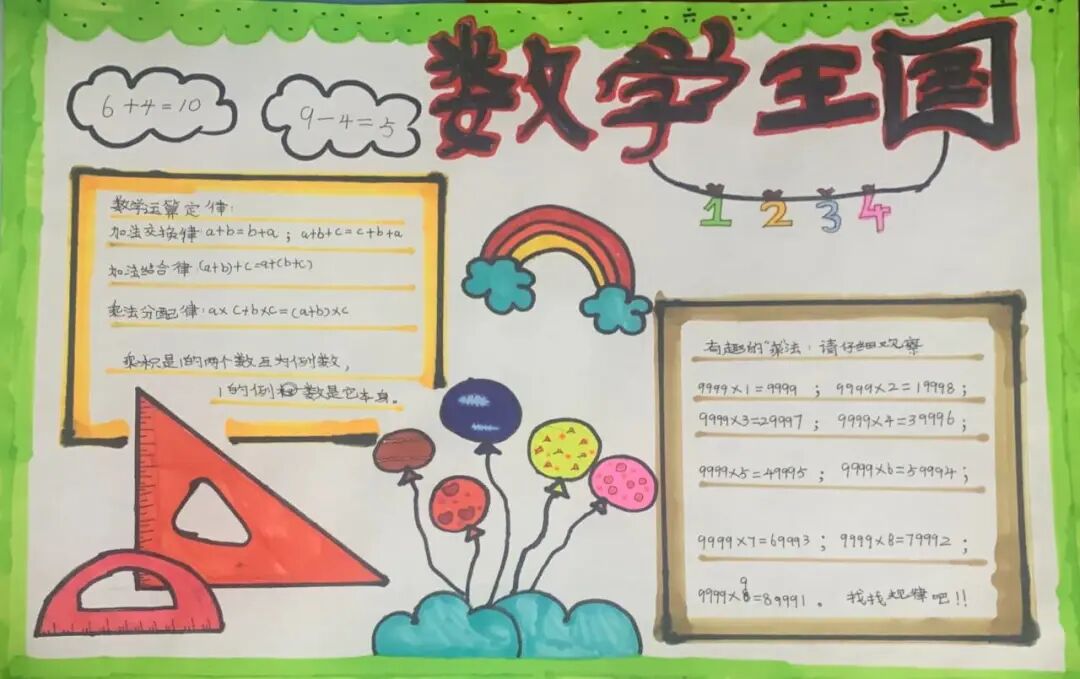 数学王国
6+4=10
9-4=5
1 2 3 4
数学运算定律:
加法交换律 a+b=b+a ; a+b+c=c+b+a
加法结合律 (a+b)+c=a+(b+c)
乘法分配律: a×c+b×c=(a+b)×c
乘积是1的两个数互为例数,
1的例数是它本身。
有趣的"乘法: 请仔细观察
9999×1=9999 ; 9999×2=19998 ;
9999×3=29997 ; 9999×4=39996 ;
9999×5=49995 ; 9999×6=59994 ;
9999×7=69993 ; 9999×8=79992 ;
9999×9=89991 。 找找规律吧!!